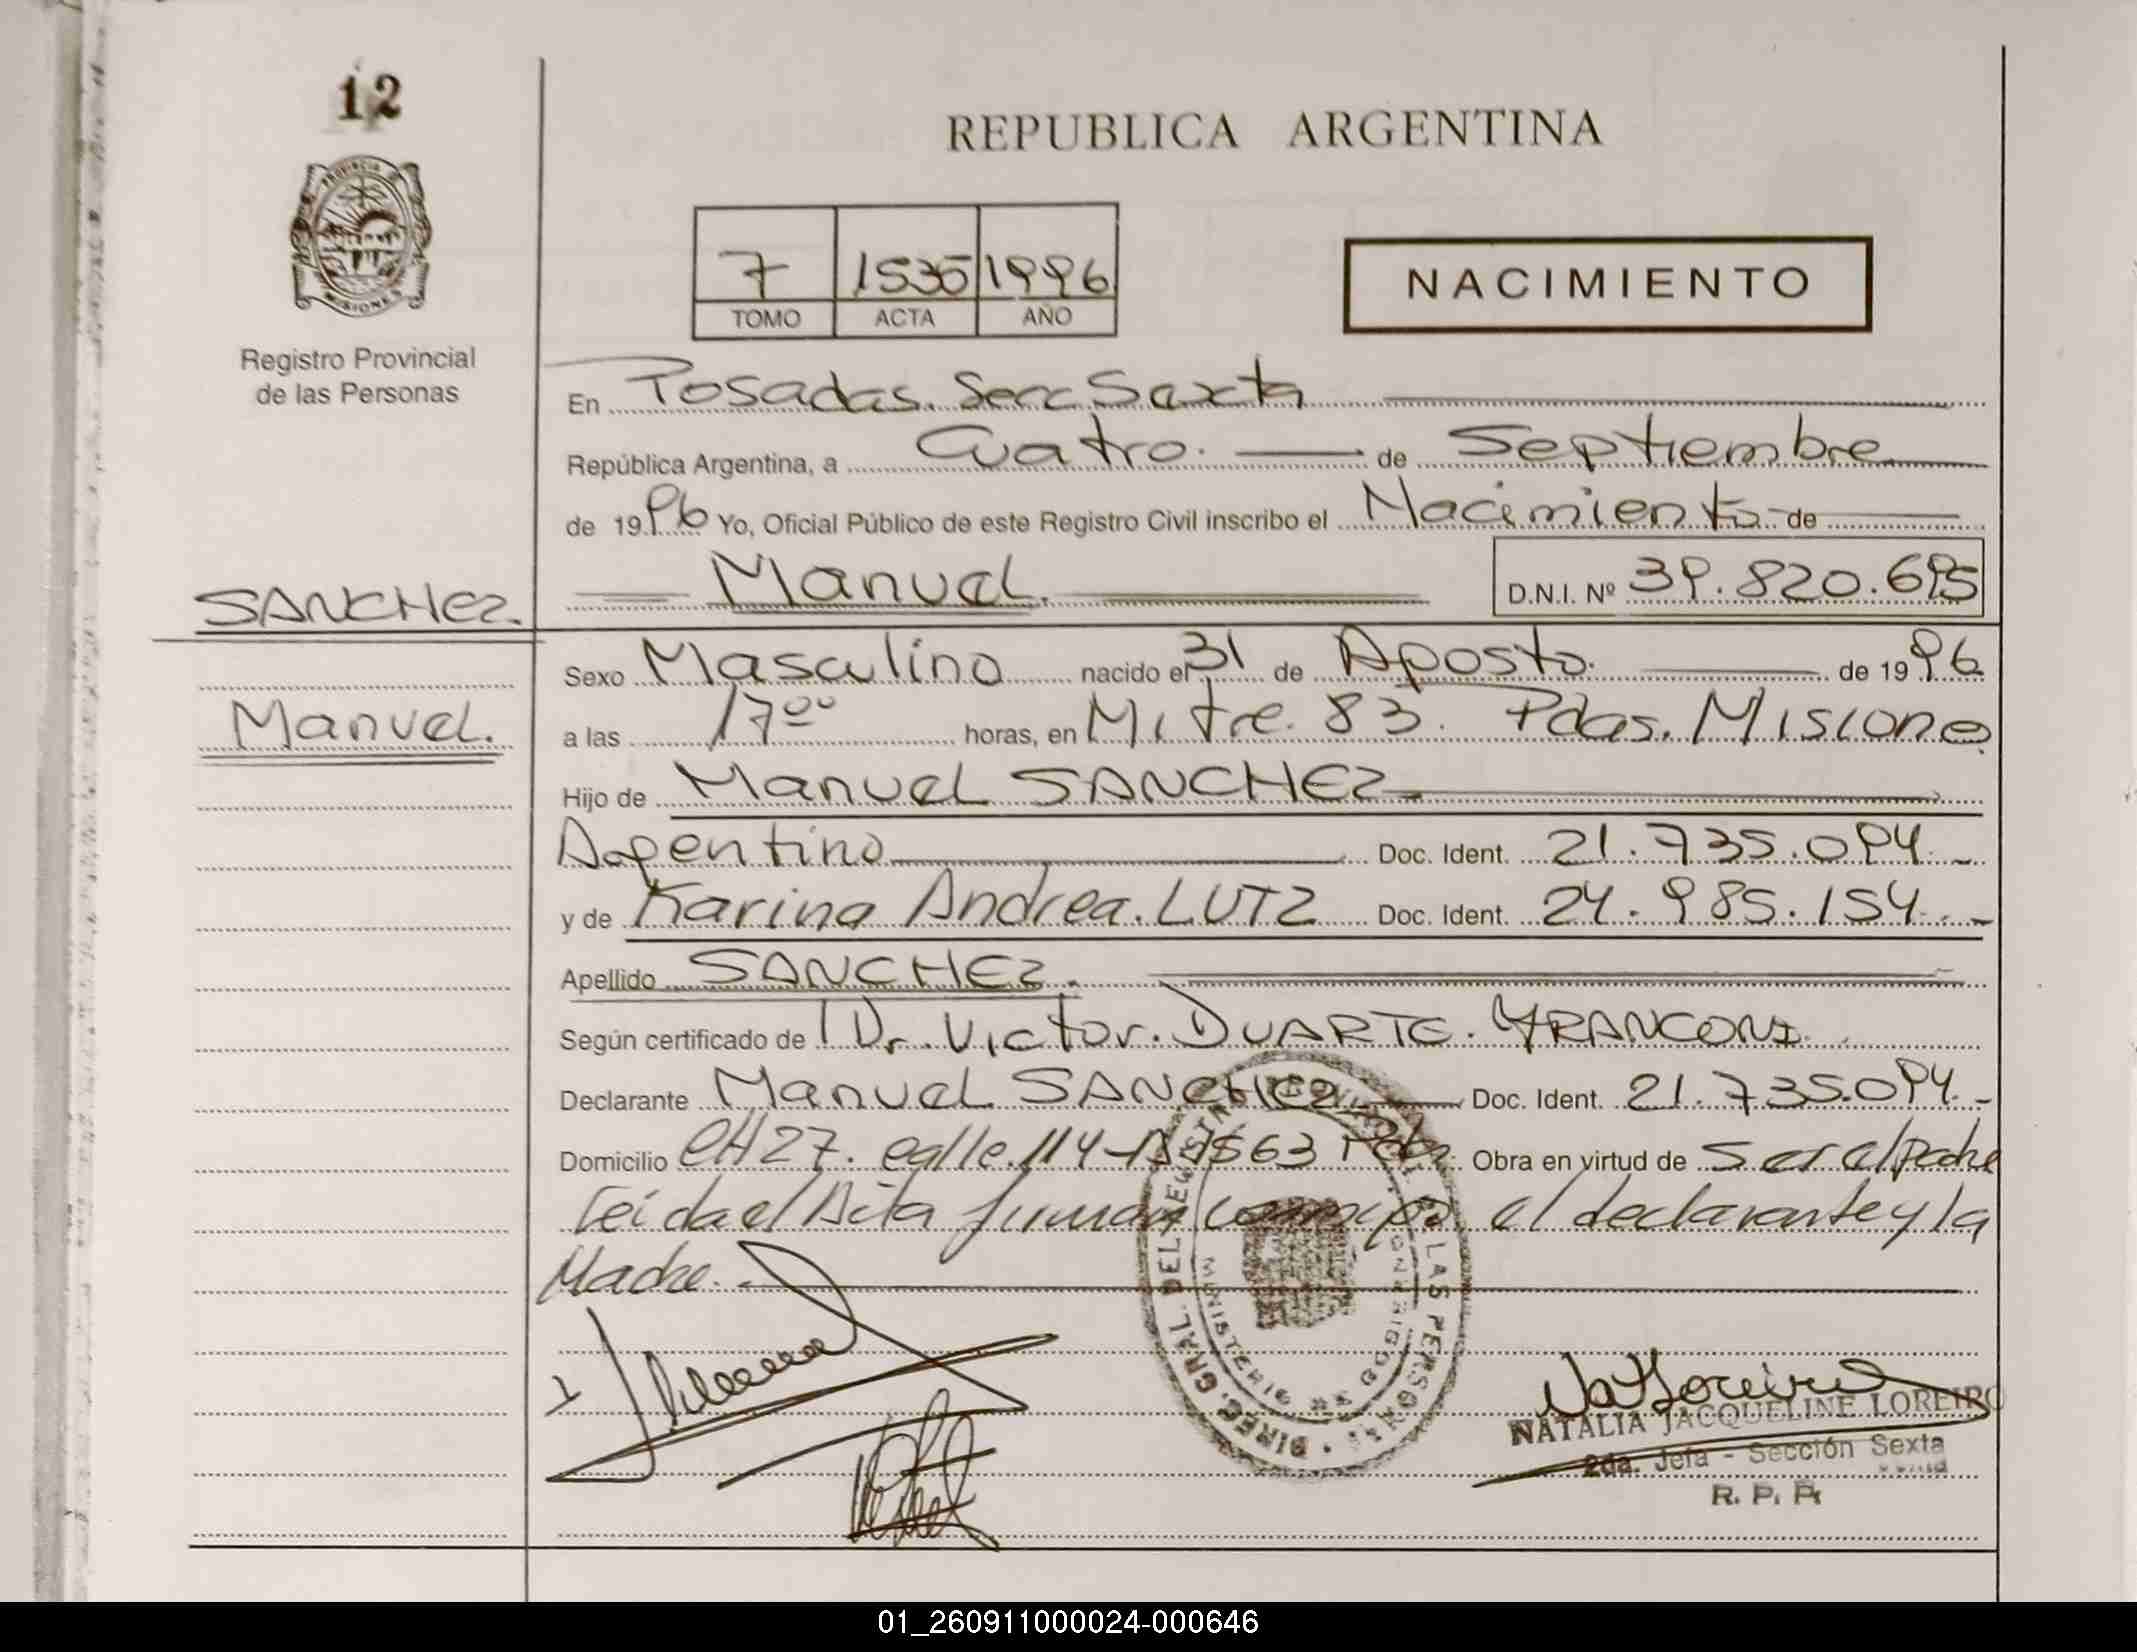 12
REPUBLICA ARGENTINA
PROVINCIA
MISIONES
Registro Provincial
de las Personas
7 1535 1996
TOMO ACTA AÑO
NACIMIENTO
En Posadas. Secc Sexta
República Argentina, a Cuatro. de Septiembre
de 1996 Yo, Oficial Público de este Registro Civil inscribo el Nacimiento de
Manuel. D.N.I. Nº 39.820.695
SANCHEZ.
Sexo Masculino nacido el 31 de Agosto. de 1996
Manuel.
a las 17⁰⁰ horas, en Mitre. 83. Pdas. Misiones
Hijo de Manuel SANCHEZ
Argentino Doc. Ident. 21.735.094.-
y de Karina Andrea. LUTZ Doc. Ident. 24.985.154.-
Apellido SANCHEZ.
Según certificado de Dr. Victor. DUARTE.
Declarante Manuel SANCHEZ Doc. Ident. 21.735.094.-
Domicilio CH 27. calle. 114 Obra en virtud de ser el Padre
Leida el Acta firman el declarante y la
Madre.
DIREC. GRAL. DEL REGISTRO LAS PERSONAS
MINISTERIO
NATALIA JACQUELINE LOREIRO
2da. Jefa - Sección Sexta
R. P. P.
01_260911000024-000646